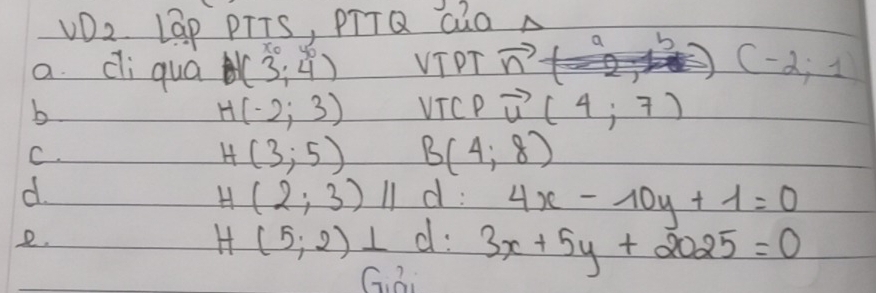 VD2. Lập PTTS, PTTQ của Δ
a. đi qua H(3;4) VTPT n→ (-2; 1)
b. H(-2; 3) VTCP u→ (4; 7)
c. H(3;5) B(4; 8)
d. H(2;3) // d: 4x - 10y + 1 = 0
e. H(5;2) ⊥ d: 3x + 5y + 2025 = 0
Giải